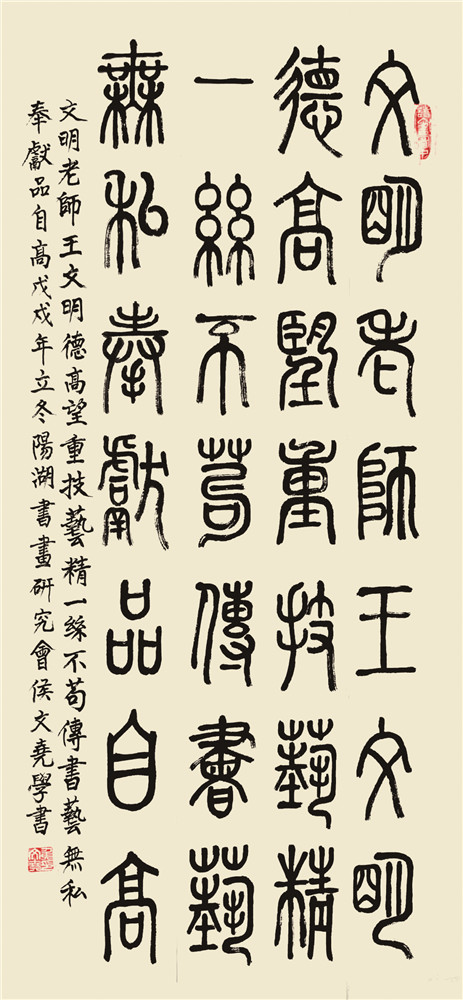 文明老師王文明
德高望重技藝精
一絲不苟傳書藝
無私奉獻品自高
文明老師王文明德高望重技藝精一絲不苟傳書藝無私
奉獻品自高戊戌年立冬陽湖書畫研究會侯文堯學書